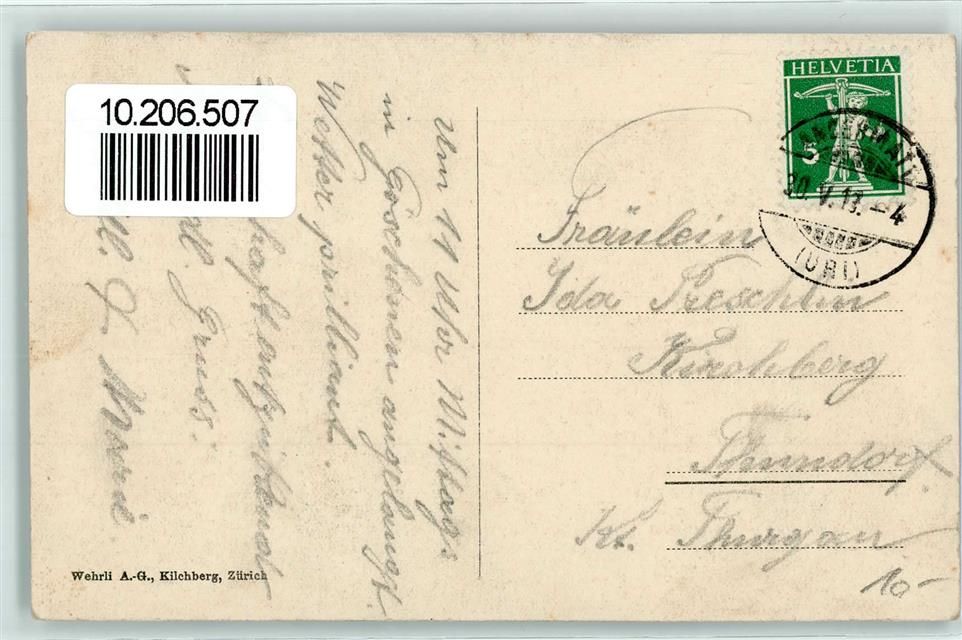 10.206.507
HELVETIA
5
30.V.13. 4
(URI)
Um 11 Uhr Mittags
in Göschenen angelangt.
Wetter prilliant.
Gruss.
& Marie.
Fräulein
Ida Preschlin
Kirchberg
Thundorf
Kt. Thurgau
10-
Wehrli A.-G., Kilchberg, Zürich